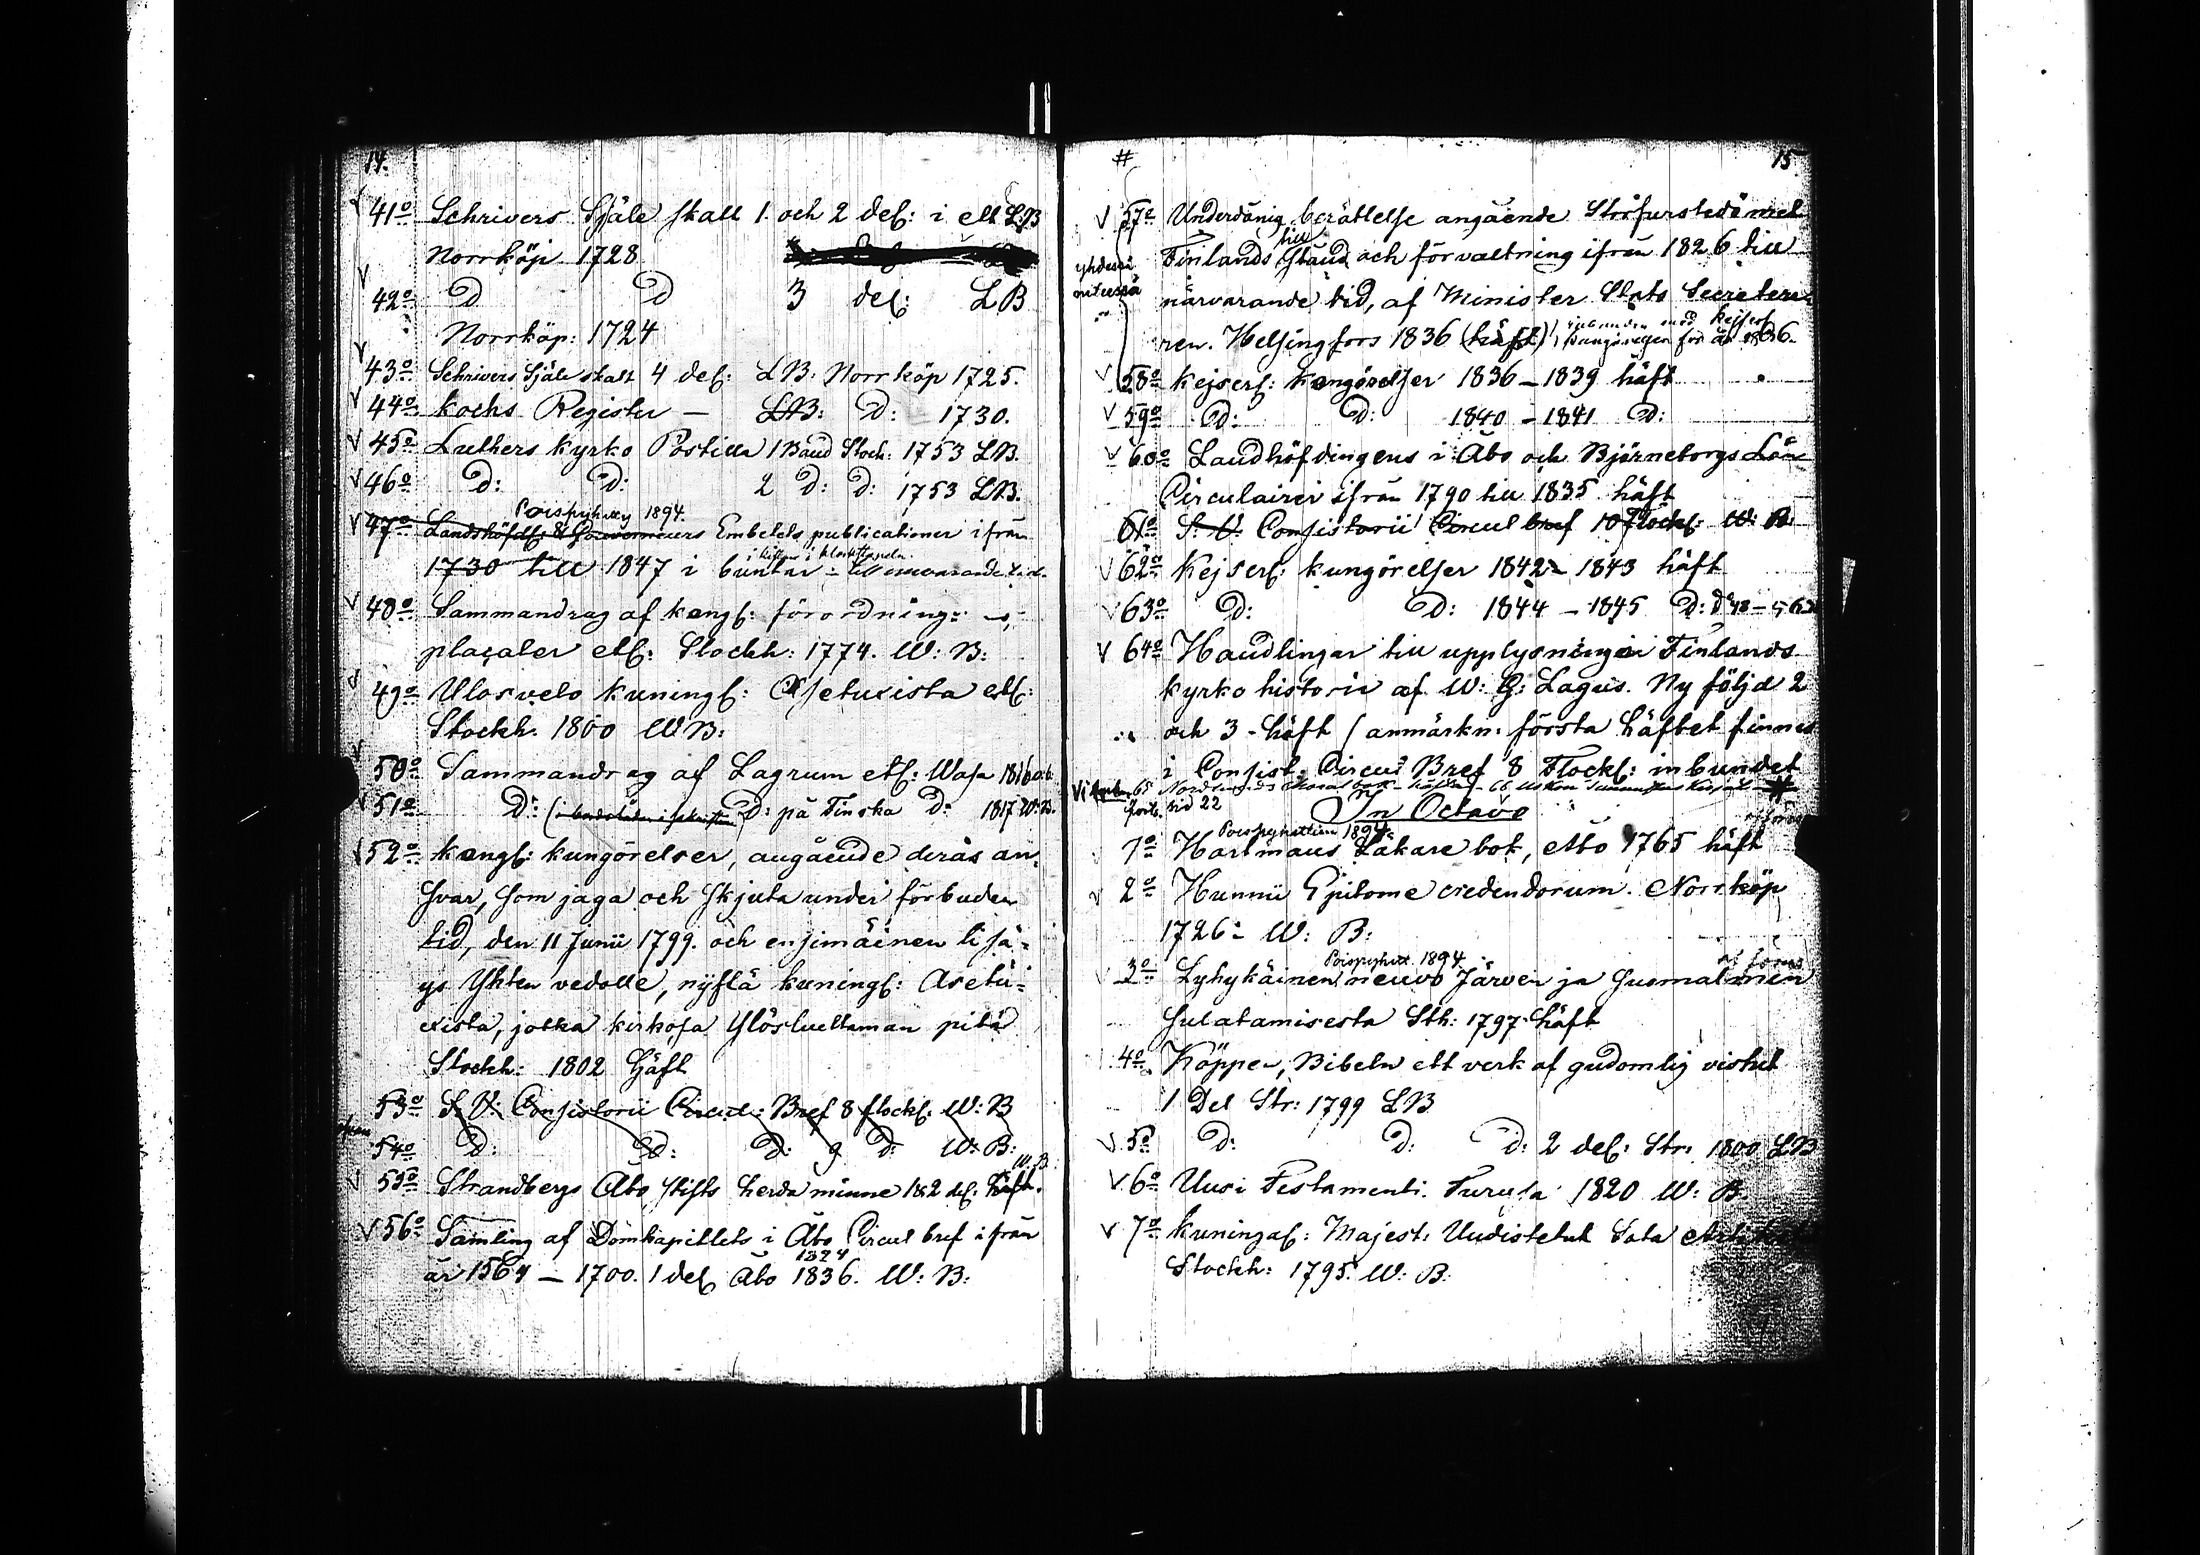 14.
41o Schrivers Själe skatt 1. och 2 del: i ett LB
Norrköp 1728
42o D D 3 del: LB
Norrköp: 1724
43o Schrivers Själe skatt 4 del: LB: Norrköp 1725.
44o kochs Register — LB: D: 1730.
45o Luthers kyrko Postilla 1 Band Stock: 1753 LB.
46o D: D: 2 D: D: 1753 LB.
Poispyhitty 1894.
47o Landshöfd: & Gouverneurs Embetets publicationer ifrån
1730 till 1847 i buntar
48o Sammandrag af kongl: förordning:
placater etc: Stockh: 1774. W: B:
49o Ulosveto kuningl: Asetuxista etc:
Stockh. 1800 WB:
50o Sammandrag af Lagrum etc: Wasa 1816
51o D: D: på Finska D: 1817 W: B.
52o kongl: kungörelser, angående deras an-
svar, som jaga och skjuta under förbuden
tid, den 11 Junii 1799. och ensimäinen lisä-
ys Yhten vedolle, nysstä kuningl: Asetu-
xista, jotka kirkosa Ylösluettaman pitä
Stockh: 1802 häft
53o S. V: Consistorii Circul: Bref 8 flockl: W: B
54o D: D: D: 9 D: W: B:
W. B.
55o Strandbergs Åbo stifts herda minne 1 & 2 del: häft.
56o Samling af Domkapitlets i Åbo Circul bref ifrån
1824
år 1564 — 1700. 1 del Åbo 1836. W: B:
# 15
57o Underdånig berättelse angående Storfurstedömet
till
Finlands stånd och förvaltning ifrån 1826 till
yhdessä
niteessä
närvarande tid, af Minister Stats Secretera-
inbunden med kejserl
ren. Helsingfors 1836 (häft) kungörelser för år 1836.
58o kejserl: kongörelser 1836 — 1839 häft
59o D: D: 1840 — 1841 D:
60o Landhöfdingens i Åbo och Björneborgs Län
Circulairer ifrån 1790 till 1835 häft
61o S. V. Consistorii Circul bref 10 flockl: W: B.
62o kejserl: kungörelser 1842 — 1843 häft
63o D: D: 1844 — 1845 D:
64o Handlingar till upplysning i Finlands
kyrko historie af W: G: Lagus. Ny följd 2
och 3 - häft (anmärkn: första häftet finnes
i Consist: Circul Bref 8 flockl: inbundet
sid 22
In Octavo
Poispyhittiin 1894.
1o Hartmans Läkare bok, Åbo 1765 häft
2o Hunnii Epitome credendorum. Norrköp
1726: W: B:
Poispyhit 1894
3o Lyhykäinen neuvo Järven ja Suomalmin
Sulatamisesta Sth: 1797 häft
4o Köppen, Bibeln ett verk af gudomlig vishet
1 Del Str: 1799 LB
5o D: D: D: 2 del: Str: 1800 LB
6o Uusi Testamenti. Turusa 1820 W: B.
7o kuningal: Majest: Uudistetut Sota
Stockh: 1795. W: B.